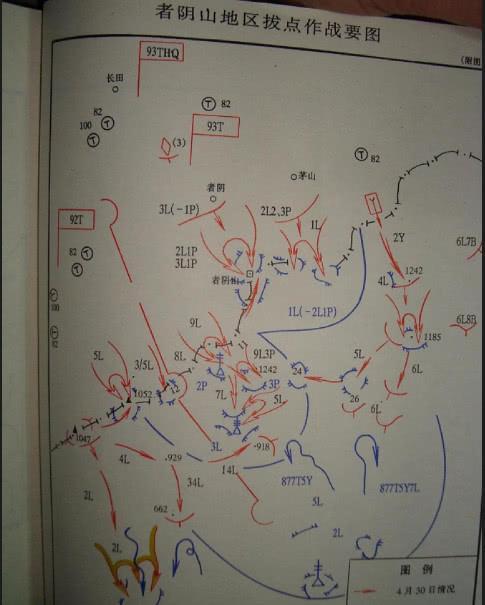 者阴山地区拔点作战要图
(附图
93THQ
长田
82
100
82
93T
(3)
82
茅山
者阴
3L(-1P)
2L2、3P
1L
92T
2Y
6L7B
2L1P
3L1P
82
1242
4L
者阴山
100
1L(-2L1P)
6L8B
82
9L
11
1185
5L
3/5L
8L
9L3P
1242
5L
24
2P
3P
6L
1052
12
7L
5L
26
6L
1047
3L
·918
4L
·929
14L
2L
34L
877T5Y
877T5Y7L
5L
662
2L
2L
图 例
4月30日情况